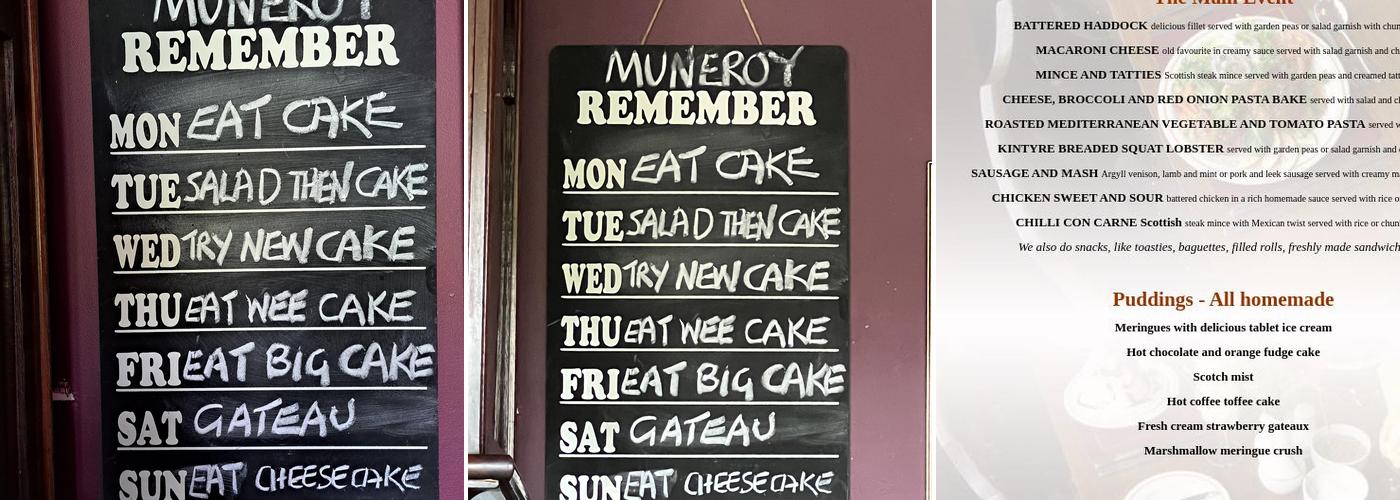 MUNEROY
REMEMBER
MON EAT CAKE
TUE SALAD THEN CAKE
WED TRY NEW CAKE
THU EAT WEE CAKE
FRI EAT BIG CAKE
SAT GATEAU
SUN EAT CHEESECAKE
MUNEROY
REMEMBER
MON EAT CAKE
TUE SALAD THEN CAKE
WED TRY NEW CAKE
THU EAT WEE CAKE
FRI EAT BIG CAKE
SAT GATEAU
SUN EAT CHEESECAKE
The Main Event
BATTERED HADDOCK delicious fillet served with garden peas or salad garnish with
MACARONI CHEESE old favourite in creamy sauce served with salad garnish and
MINCE AND TATTIES Scottish steak mince served with garden peas and creamed
CHEESE, BROCCOLI AND RED ONION PASTA BAKE served with salad and
ROASTED MEDITERRANEAN VEGETABLE AND TOMATO PASTA served
KINTYRE BREADED SQUAT LOBSTER served with garden peas or salad garnish and
SAUSAGE AND MASH Argyll venison, lamb and mint or pork and leek sausage served with creamy
CHICKEN SWEET AND SOUR battered chicken in a rich homemade sauce served with rice
CHILLI CON CARNE Scottish steak mince with Mexican twist served with rice or
We also do snacks, like toasties, baguettes, filled rolls, freshly made
Puddings - All homemade
Meringues with delicious tablet ice cream
Hot chocolate and orange fudge cake
Scotch mist
Hot coffee toffee cake
Fresh cream strawberry gateaux
Marshmallow meringue crush